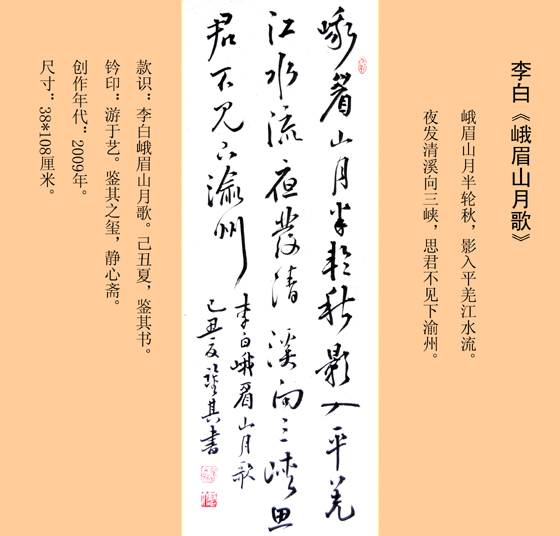 李白《峨眉山月歌》
峨眉山月半轮秋，影入平羌江水流。
夜发清溪向三峡，思君不见下渝州。
峨眉山月半轮秋影入平羌
江水流夜发清溪向三峡思
君不见下渝州
李白峨眉山月歌
己丑夏鉴其书
款识：李白峨眉山月歌。己丑夏，鉴其书。
钤印：游于艺。鉴其之玺，静心斋。
创作年代：2009年。
尺寸：38*108厘米。